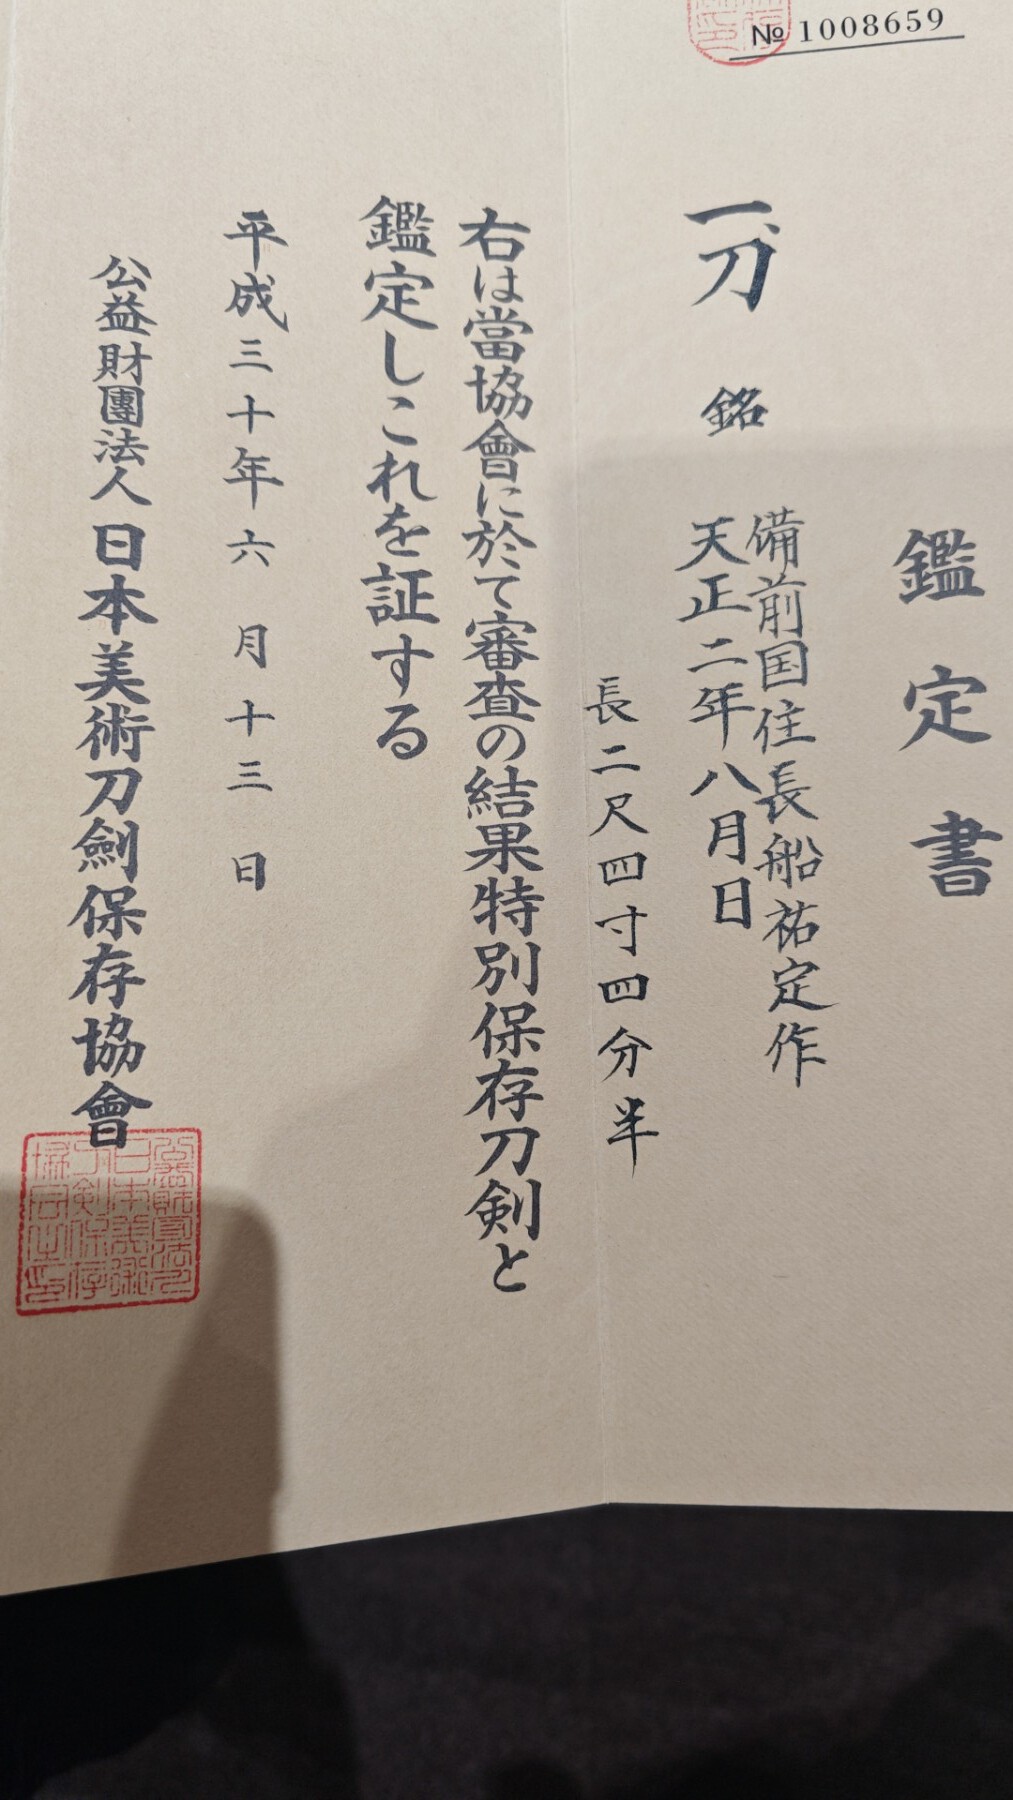 № 1008659
鑑定書
一、刀 銘
備前国住長船祐定作
天正二年八月日
長二尺四寸四分半
右は當協會に於て審査の結果特別保存刀剣と
鑑定しこれを証する
平成三十年六月十三日
公益財團法人日本美術刀劍保存協會